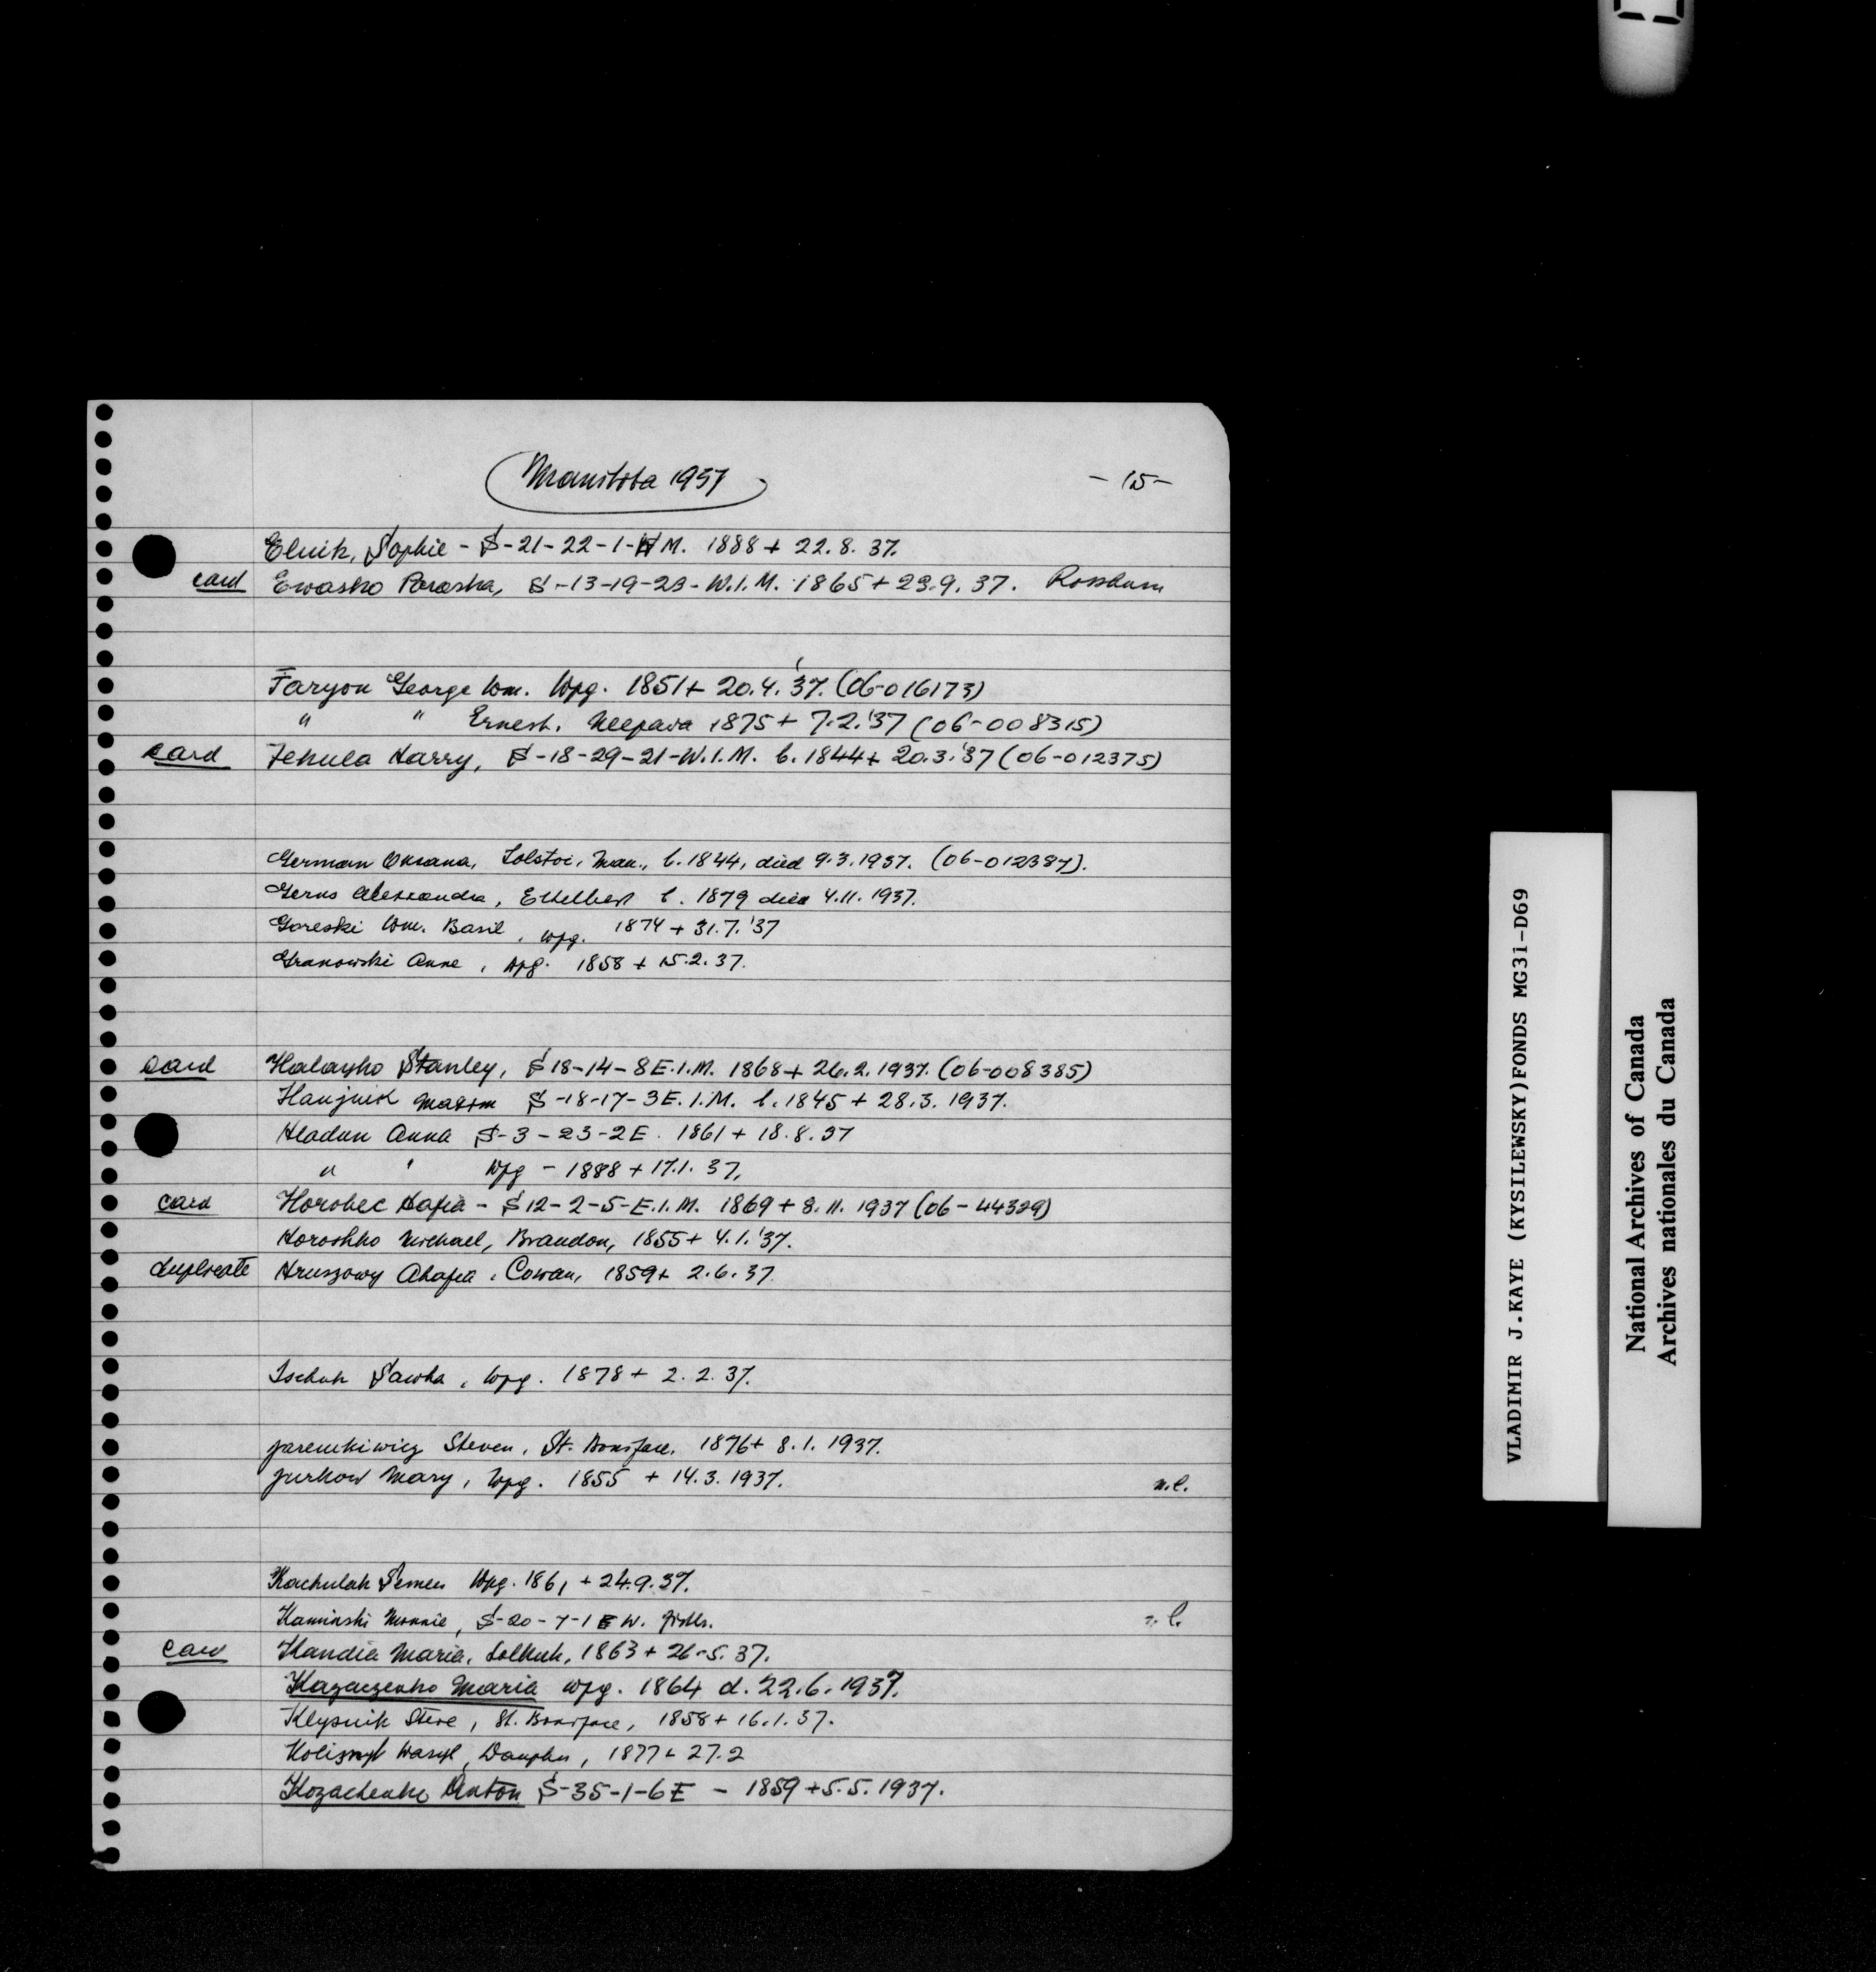 Manitoba 1937
- 15 -
Elnik, Sophie - S-21-22-1-W M. 1888 + 22.8. 37.
card Ewasko Paraska, S-13-19-23-W.1.M. 1865 + 23.9.37. Rossburn
Faryon George Wm. Wpg. 1851 + 20.4.'37. (06-016173)
" " Ernest. Neepawa 1875 + 7.2.'37 (06-008315)
card Fekula Harry, S-18-29-21-W.1.M. b. 1844 + 20.3.'37 (06-012375)
German Oksana, Tolstoi, Man., b. 1844, died 9.3.1937. (06-012387).
Gerus Alexandra, Ethelbert b. 1879 died 4.11.1937.
Goreski Wm. Basil, Wpg. 1874 + 31.7.'37
Granowski Anne, Wpg. 1858 + 15.2.37.
card Halayko Stanley, S 18-14-8E.1.M. 1868 + 26.2.1937. (06-008385)
Hanjnik Maxim S-18-17-3E.1.M. b. 1845 + 28.3.1937.
Hladun Anna S-3-23-2E. 1861 + 18.8.37
" " Wpg - 1888 + 17.1.37.
card Horobec Hafia - S 12-2-5-E.1.M. 1869 + 8.11.1937 (06-44329)
Horoshko Michael, Brandon, 1855 + 4.1.'37.
duplicate Hruszowy Ahafia, Cowan, 1859 + 2.6.37.
Ischuk Sawka, Wpg. 1878 + 2.2.37.
Jaremkiwicz Steven, St. Boniface. 1876 + 8.1.1937.
Jurkow Mary, Wpg. 1855 + 14.3.1937. n.l.
Kachulak Semen Wpg. 1861 + 24.9.37.
Kaminski Monnie, S-20-7-1 E W. n.l.
card Kandia Maria, Selkirk, 1863 + 26-5.37.
Kazaczenko Maria Wpg. 1864 d. 22.6.1937.
Klypnik Steve, St. Boniface, 1858 + 16.1.37.
Wasyl, Dauphin, 1877 + 27.2
Kozachenko Anton S-35-1-6E - 1859 + 5.5.1937.
VLADIMIR J.KAYE (KYSILEWSKY)FONDS MG31-D69
National Archives of Canada
Archives nationales du Canada